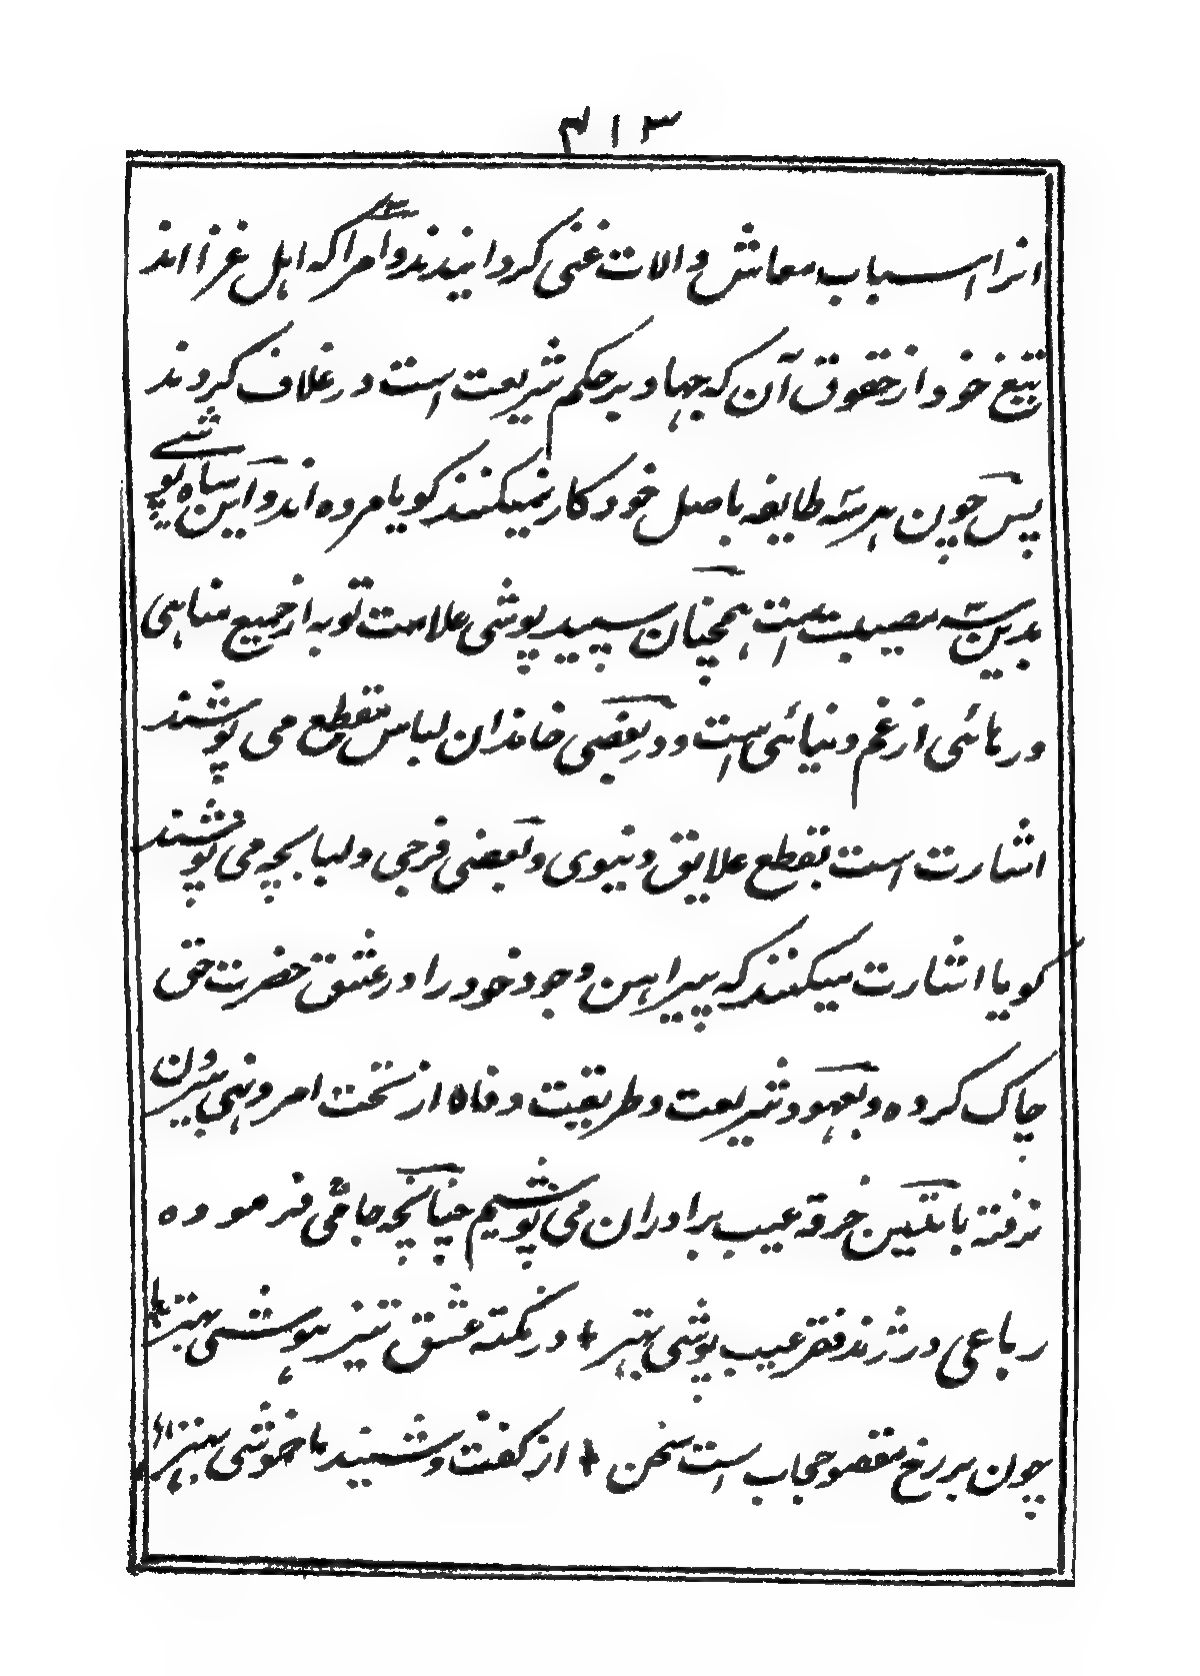 ۴۱۳
انرا اسباب معاش والات غنی کردانیدند و امرا که اهل غزا اند
تیغ خود از حقوق آن که جهاد بر حکم شریعت است در غلاف کردند
پس چون هر سه طایفه باصل خود کار نمیکنند کویا مرده اند و این سیاه پوشے
بدین سه مصیبت است همچنان سپید پوشی علامت توبه از جمیع مناهی
و رهائی از غم دنیائی است و در بعضی خاندان لباس مقطع می پوشند
اشارت است بقطع علایق دنیوی و بعضی فرجی ولباچه می پوشند
کویا اشارت میکنند که پیراهن وجود خود را در عشق حضرت حق
چاک کرده و بعهود شریعت و طریقت وفاه از تحت امر و نهی بیرون
نرفته با تلقین خرقه عیب برادران می پوشیم چنانچه جامی فرموده
رباعی در ژنده فقر عیب پوشی بهتر در نکته عشق تیز هوشی بهتر
چون بر رخ مقصود حجاب است سخن از کفت و شنید ما خموشی بهتر